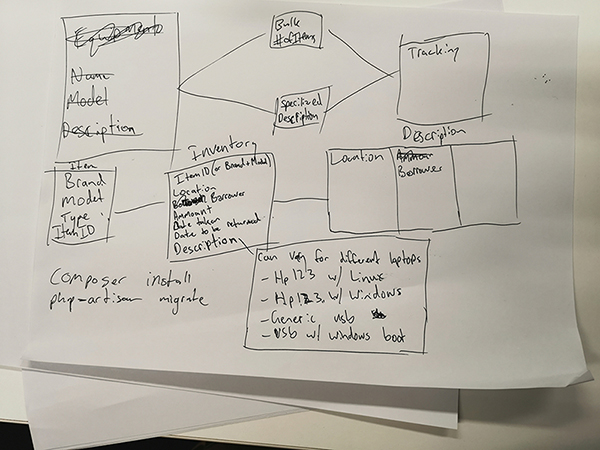 Equipments
Name
Model
Description
Bulk
# of Items
Specifized
Description
Tracking
Item
Brand
Model
Type
ItemID
Inventory
Item ID (or Brand + Model)
Location
Borrower
Ammount
Date taken
Date to be returned
Description
Description
Location
Borrower
Can vary for different laptops
- Hp123 w/ Linux
- Hp123 w/ Windows
- Generic usb
- USB w/ windows boot
Composer install
php-artisan migrate